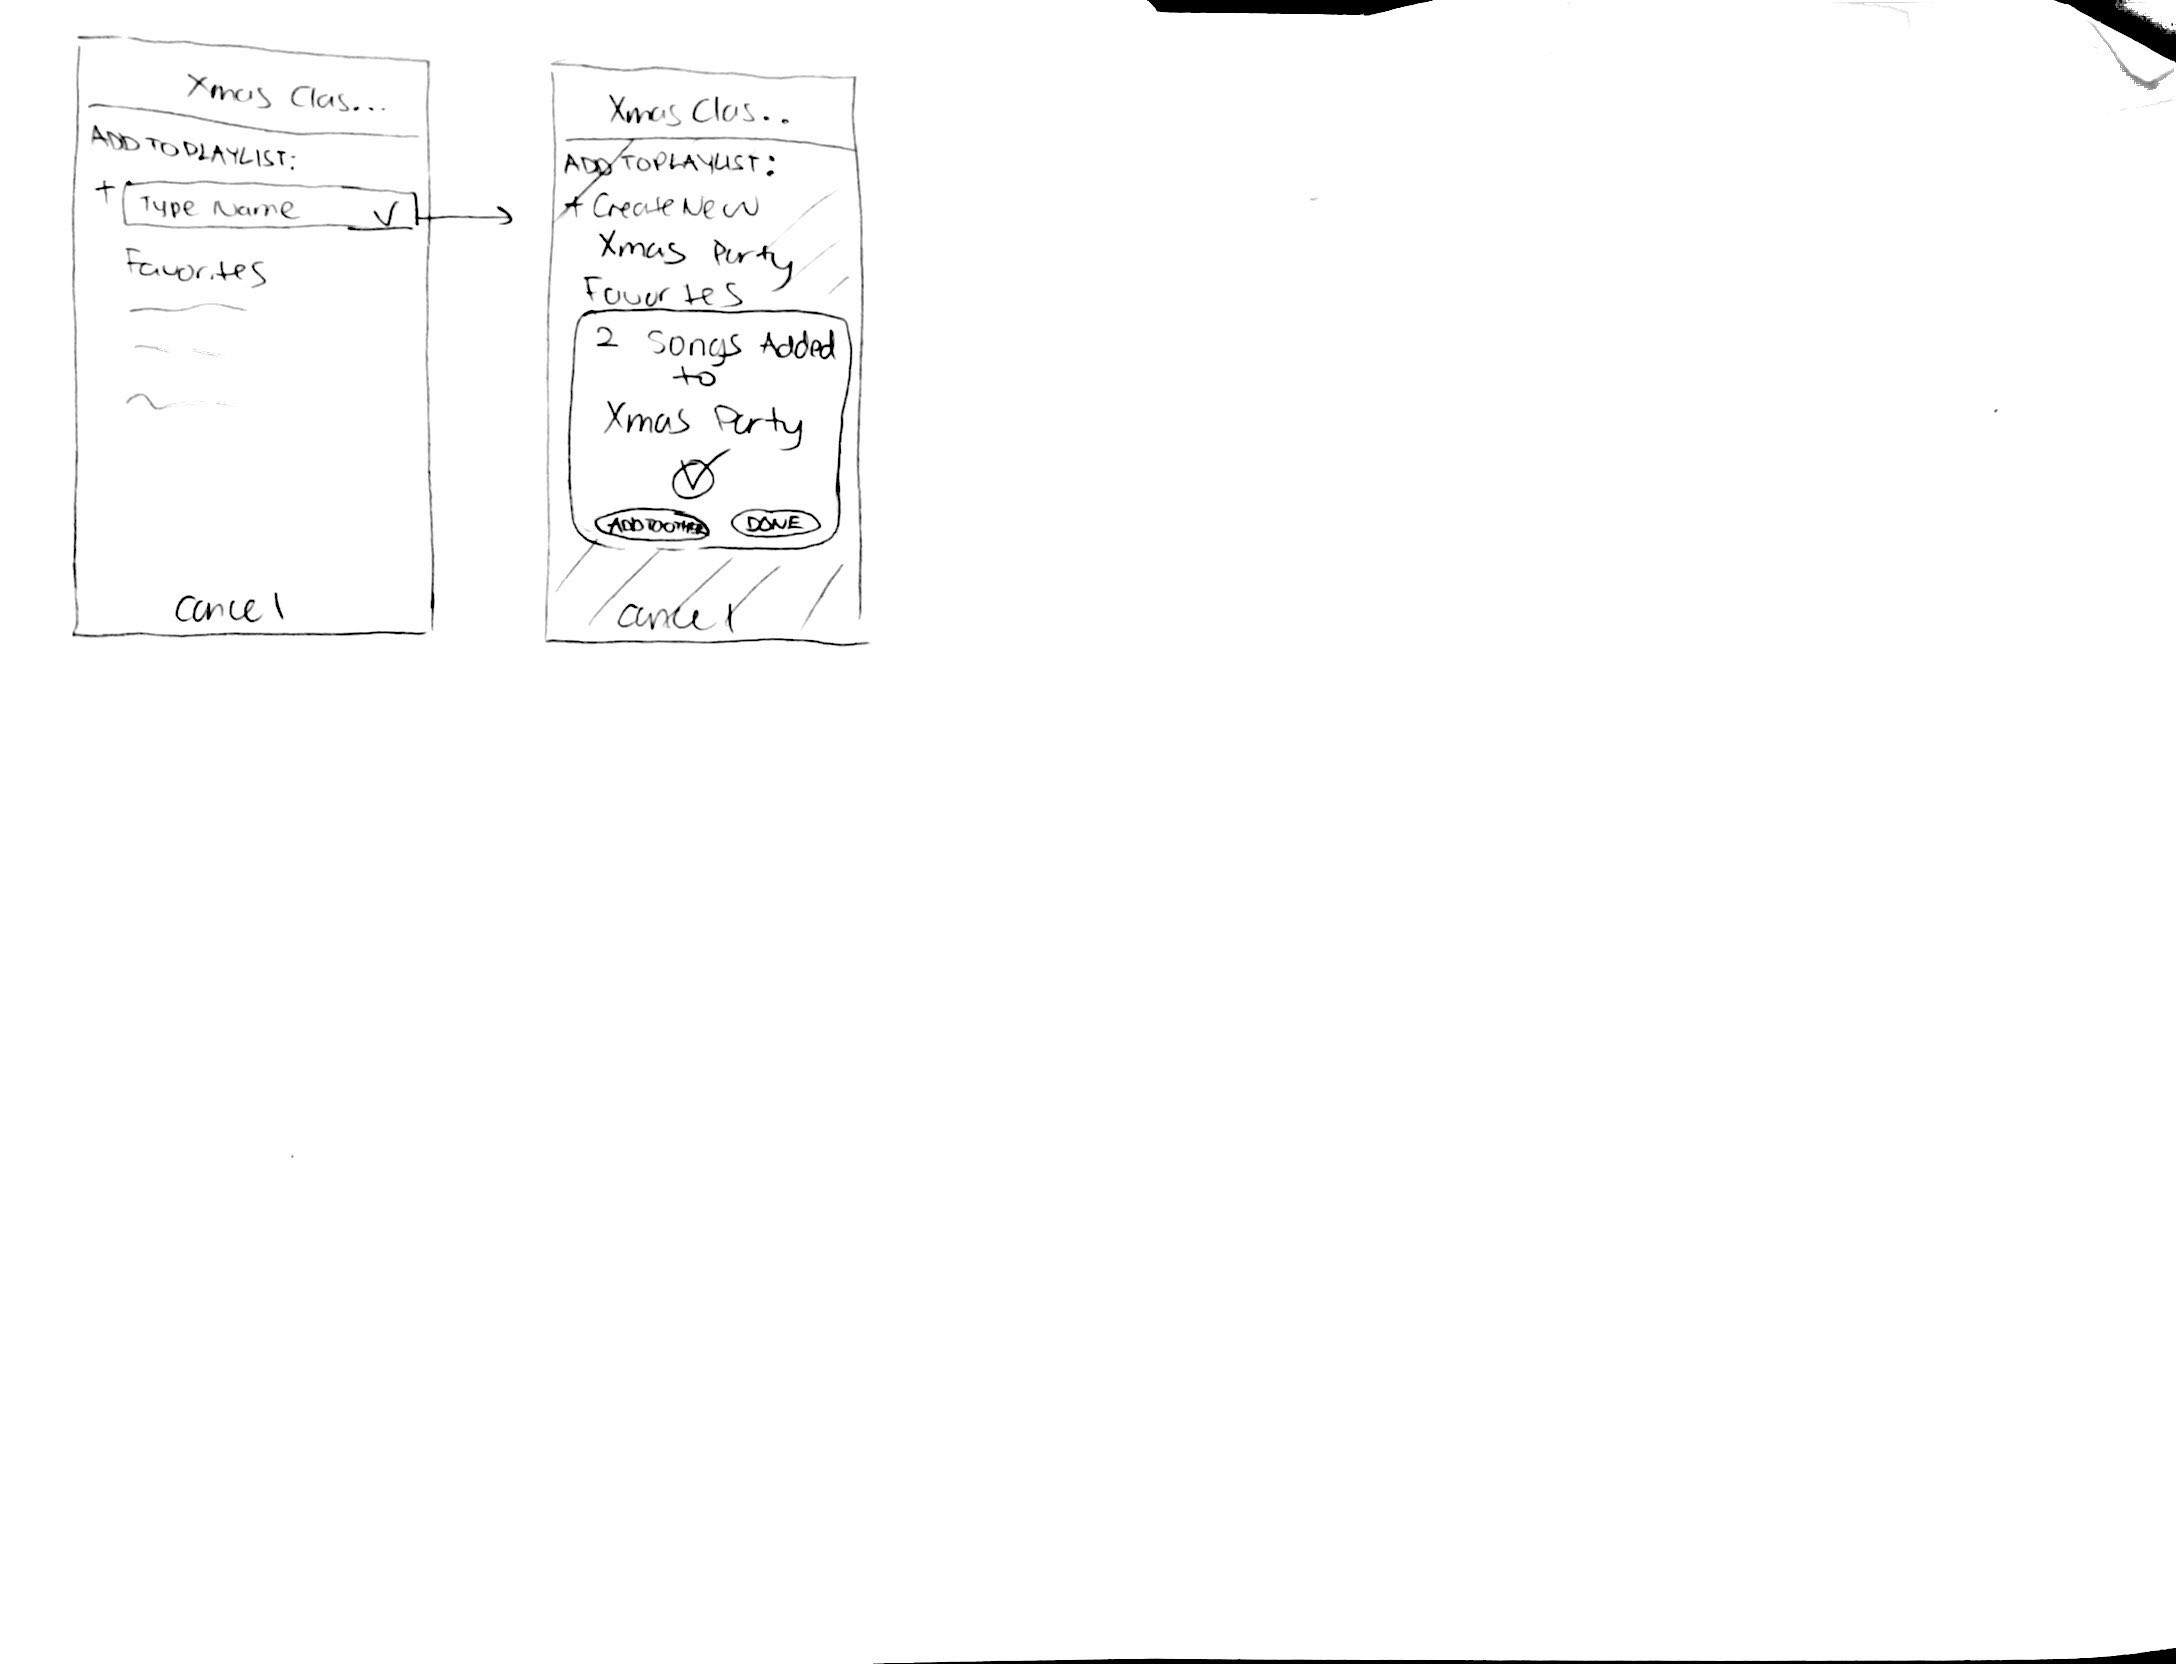 Xmas Clas...
ADD TO PLAYLIST:
+ Type Name
Favorites
Cancel
Xmas Clas..
ADD TO PLAYLIST:
+ Create New
Xmas Party
Favorites
2 Songs Added
to
Xmas Party
ADD TO OTHER
DONE
Cancel